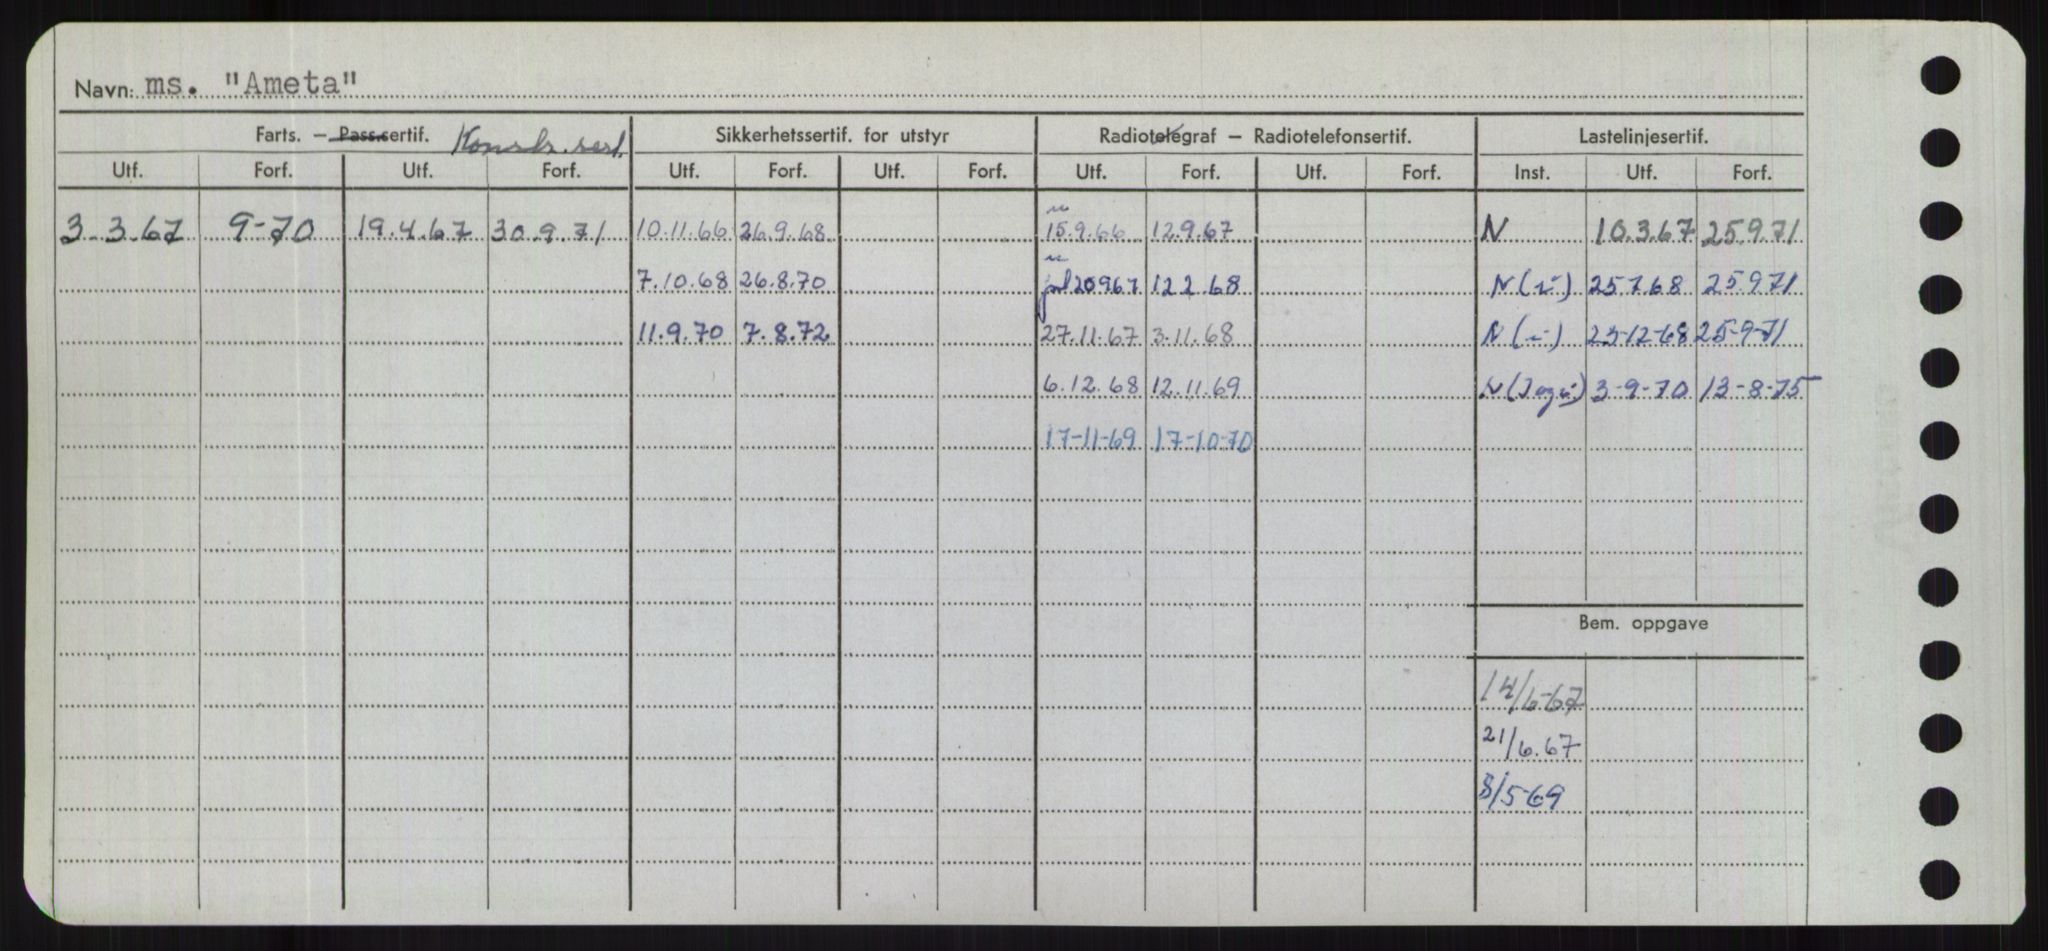 Navn: ms. "Ameta"
Farts. — Pass.sertif. Konstr. sert. Sikkerhetssertif. for utstyr Radiotelegraf — Radiotelefonsertif. Lastelinjesertif.
Utf. Forf. Utf. Forf. Utf. Forf. Utf. Forf. Utf. Forf. Utf. Forf. Inst. Utf. Forf.
3.3.67 9-70 19.4.67 30.9.71 10.11.66 26.9.68 15.9.66 12.9.67 N 10.3.67 25.9.71
7.10.68 26.8.70 20967 12 2 68 N 25.7.68 25.971
11.9.70 7.8.72 27.11.67 3.11.68 N 23-12-68 25-9-71
6.12.68 12.11.69 N 3-9-70 13-8-75
17-11-69 17-10-70
Bem. oppgave
14/6-67
21/6.67
8/5-69